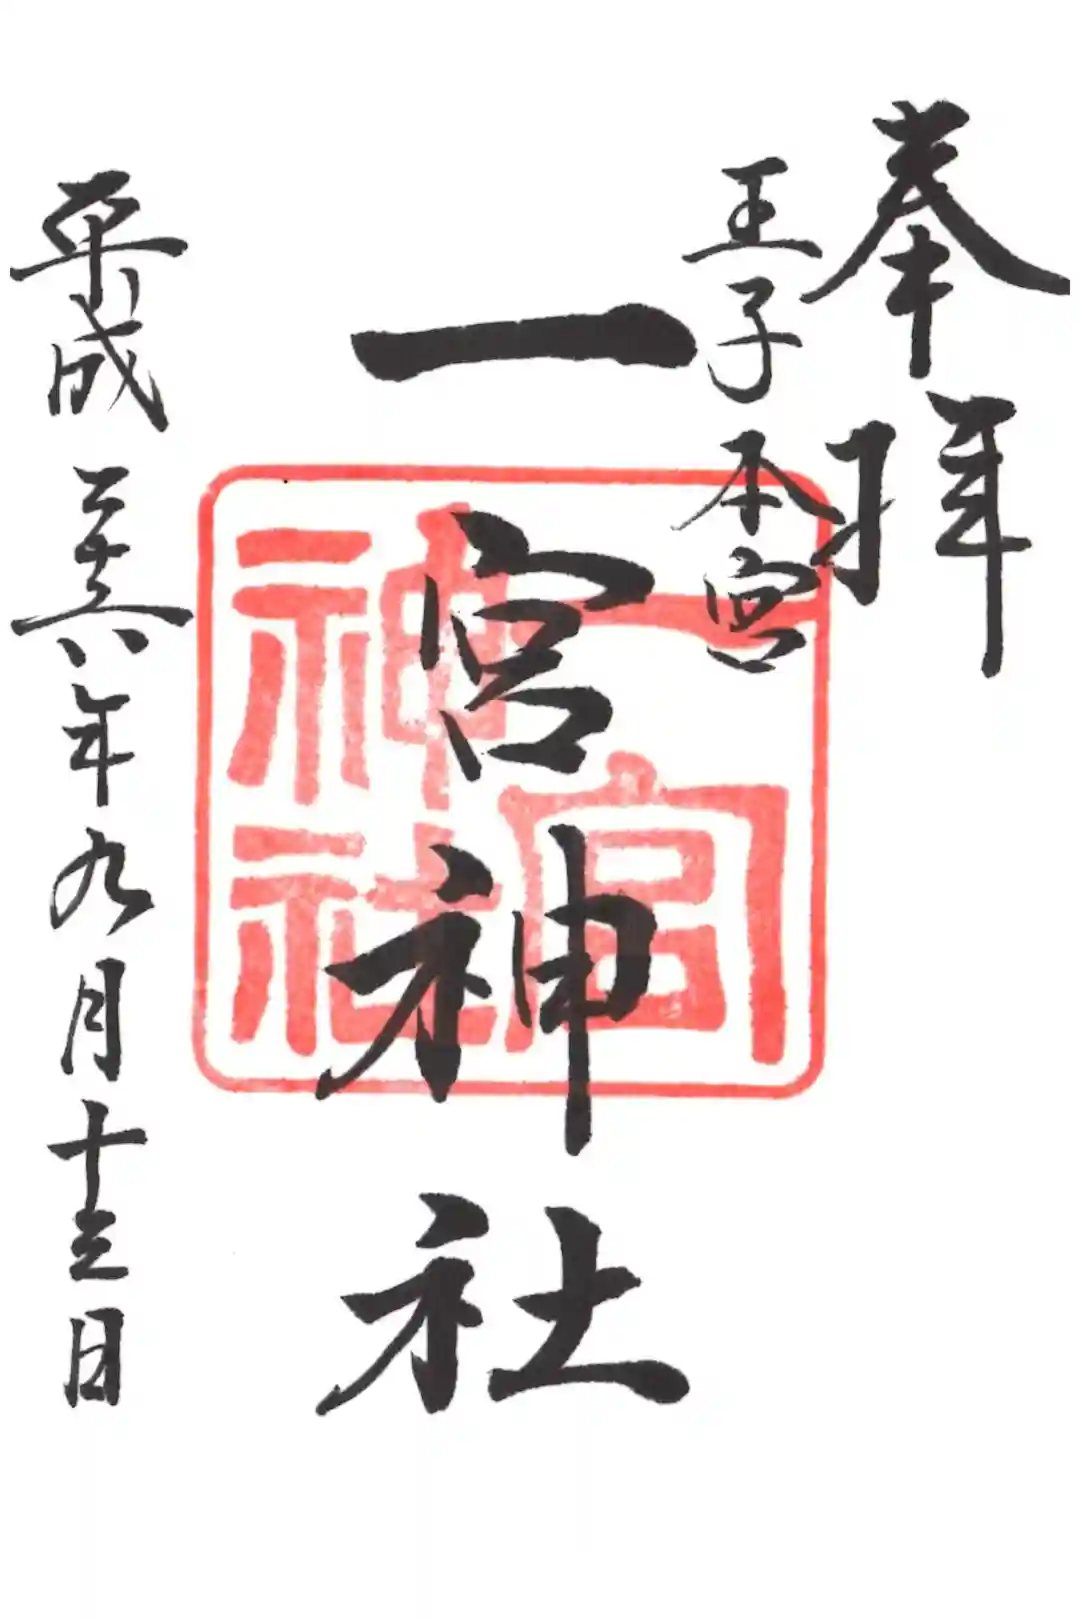 奉拝
王子本宮
一宮神社
一宮
神社
平成二十六年九月十三日